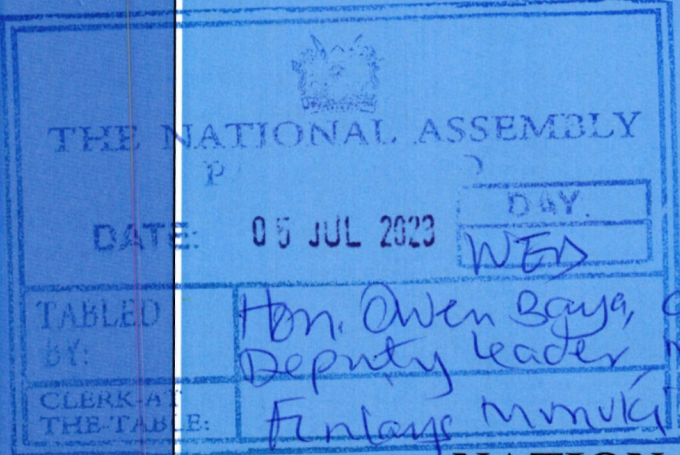 THE NATIONAL ASSEMBLY
DATE: 05 JUL 2023
DAY.
WED
TABLED BY: Hon. Owen Baya,
Deputy Leader
CLERK-AT THE-TABLE: Finlays
NATION